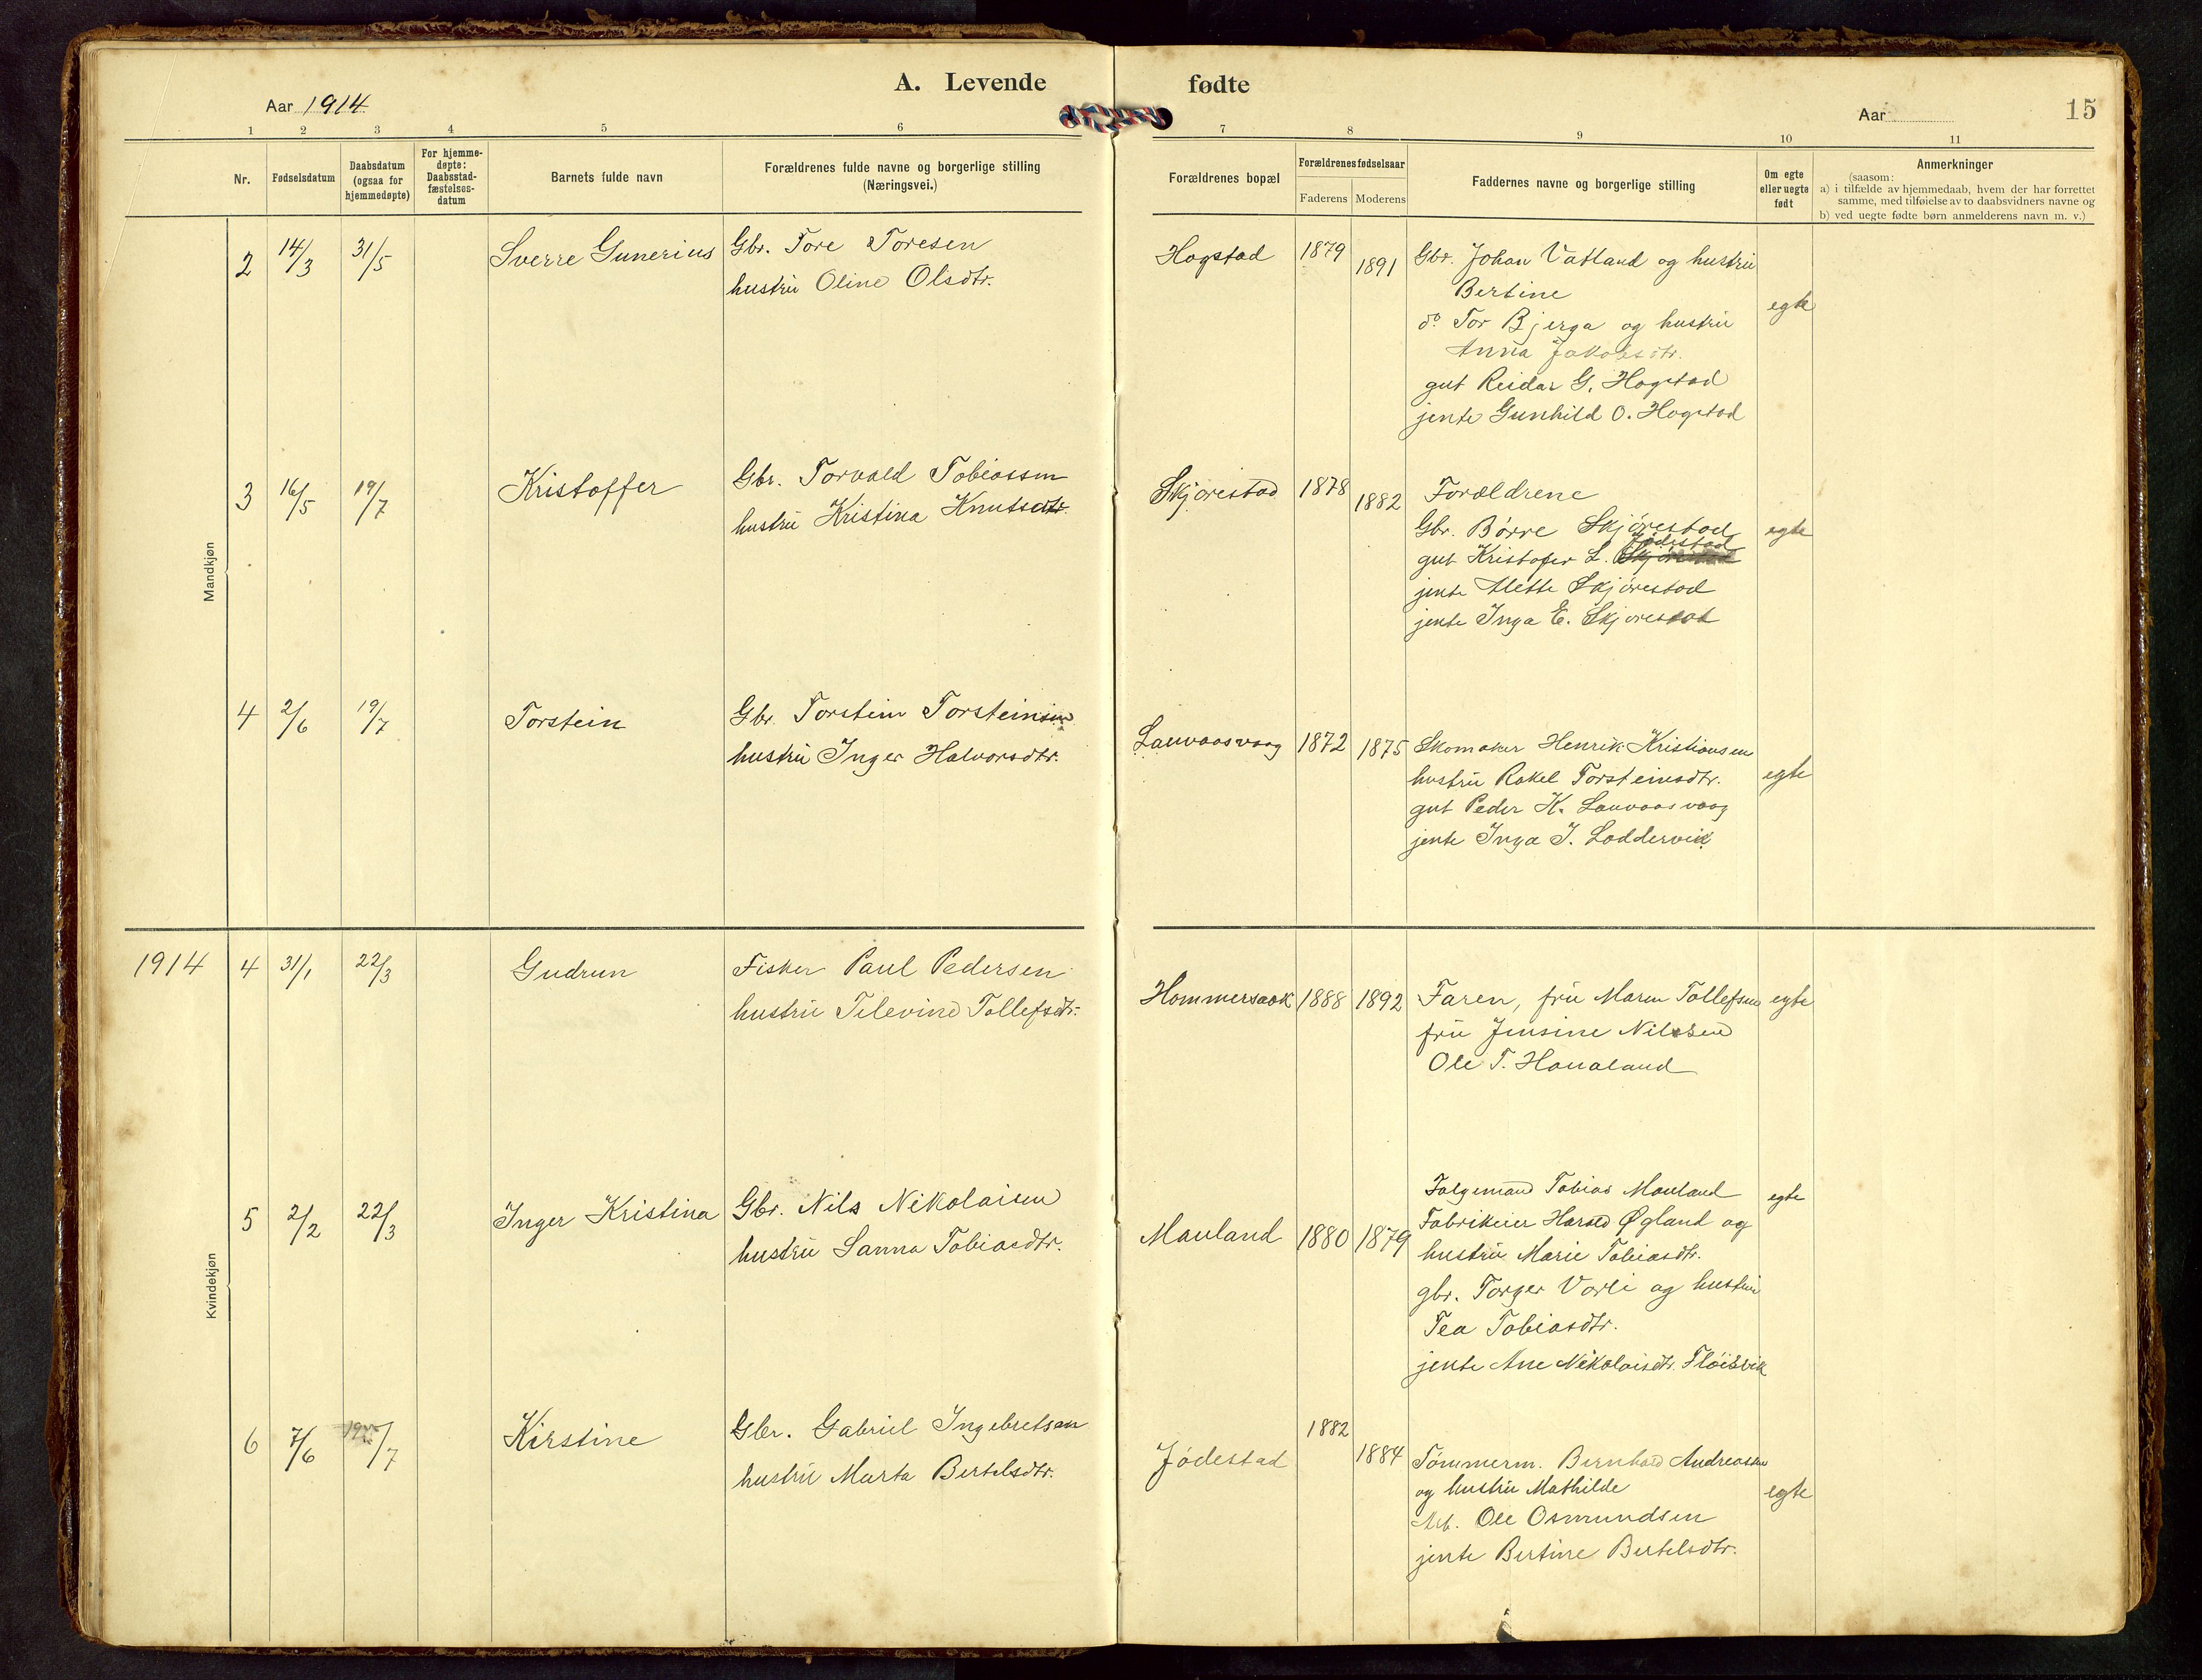 A. Levende fødte
15
Aar 1914
Aar
1 2 3 4 5 6 7 8 9 10 11
Nr.
Fødselsdatum
Daabsdatum
(ogsaa for
hjemmedøpte)
For hjemme-
døpte:
Daabsstad-
fæstelses-
datum
Barnets fulde navn
Forældrenes fulde navne og borgerlige stilling
(Næringsvei.)
Forældrenes bopæl
Forældrenes fødselsaar
Faderens Moderens
Faddernes navne og borgerlige stilling
Om egte
eller uegte
født
Anmerkninger
(saasom:
a) i tilfælde av hjemmedaab, hvem der har forrettet
samme, med tilføielse av to daabsvidners navne og
b) ved uegte fødte børn anmelderens navn m. v.)
Mandkjøn
2 14/3 31/5 Sverre Gunerius
Gbr. Tore Toresen
hustru Oline Olsdtr.
Hogstad 1879 1891
Gbr. Johan Vatland og hustru
Bertine
do Tor Bjerga og hustru
Anna Jakobsdtr.
gut Reidar G. Hogstad
jente Gunhild O. Hogstad
egte
3 16/5 19/7 Kristoffer
Gbr. Torvald Tobiassen
hustru Kristina Knutsdtr.
Skjørestad 1878 1882
Forældrene
Gbr. Børre Skjørestad
Jødestad
gut Kristofer L. Skjørestad
jente Mette Skjørestad
jente Inga E. Skjørestad
egte
4 2/6 19/7 Torstein
Gbr. Torstein Torsteinsen
hustru Inger Halvorsdtr.
Lauvaasvaag 1872 1875
Skomaker Henrik Kristiansen
hustru Rakel Torsteinsdtr.
gut Peder K. Lauvaasvaag
jente Inga J. Loddervik
egte
Kvindekjøn
1914 4 31/1 22/3 Gudrun
Fisker Paul Pedersen
hustru Televine Tollefsdtr.
Hommersaak 1888 1892
Faren, fru Maren Tollefsen
fru Jensine Nilssen
Ole T. Hanaland
egte
5 2/2 22/3 Inger Kristina
Gbr. Nils Nikolaisen
hustru Sanna Tobiasdtr.
Mauland 1880 1879
Følgemand Tobias Mauland
Fabrikeier Harald Øgland og
hustru Marie Tobiasdtr.
gbr. Torger Vorli og hustru
Tea Tobiasdtr.
jente Ane Nikolaisdtr. Fløisvik
egte
6 7/6 19/7 Kirstine
Gbr. Gabriel Ingebretsen
hustru Marta Bertelsdtr.
Jødestad 1882 1884
Tømmerm. Bernhard Andreassen
og hustru Mathilde
Arb. Ole Osmundsen
jente Bertine Bertelsdtr.
egte